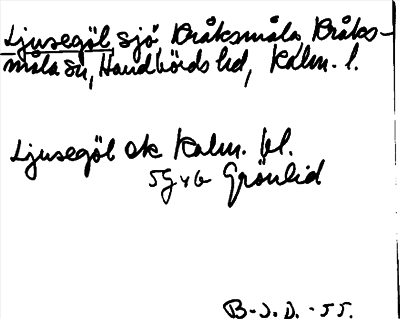 Ljusegöl, sjö Kråksmåla, Kråks-
måla sn, Handbörds hd, Kalm. l.
Ljusegöl ek Kalm. bl.
5G v b Grönlid
B-J. D. -55.